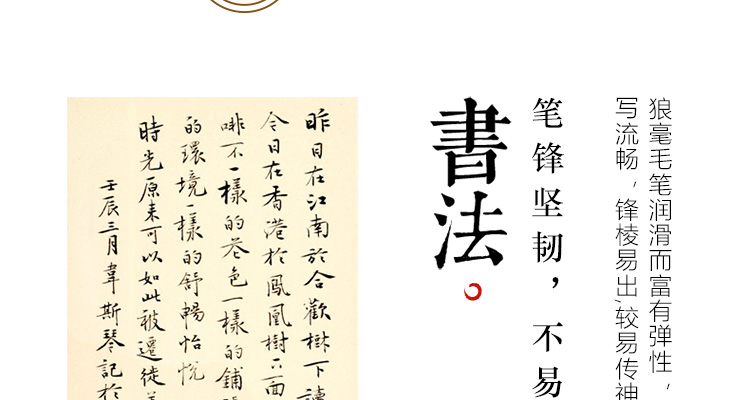 狼毫毛笔润滑而富有弹性，
写流畅，锋棱易出,较易传神
笔锋坚韧，不易
書法
昨日在江南於合歡樹下讀
今日在香港於鳳凰樹下面
啡不一樣的花色一樣的鋪
的環境一樣的舒暢怡悅
時光原来可以如此被遷徙
壬辰三月韋斯琴記於